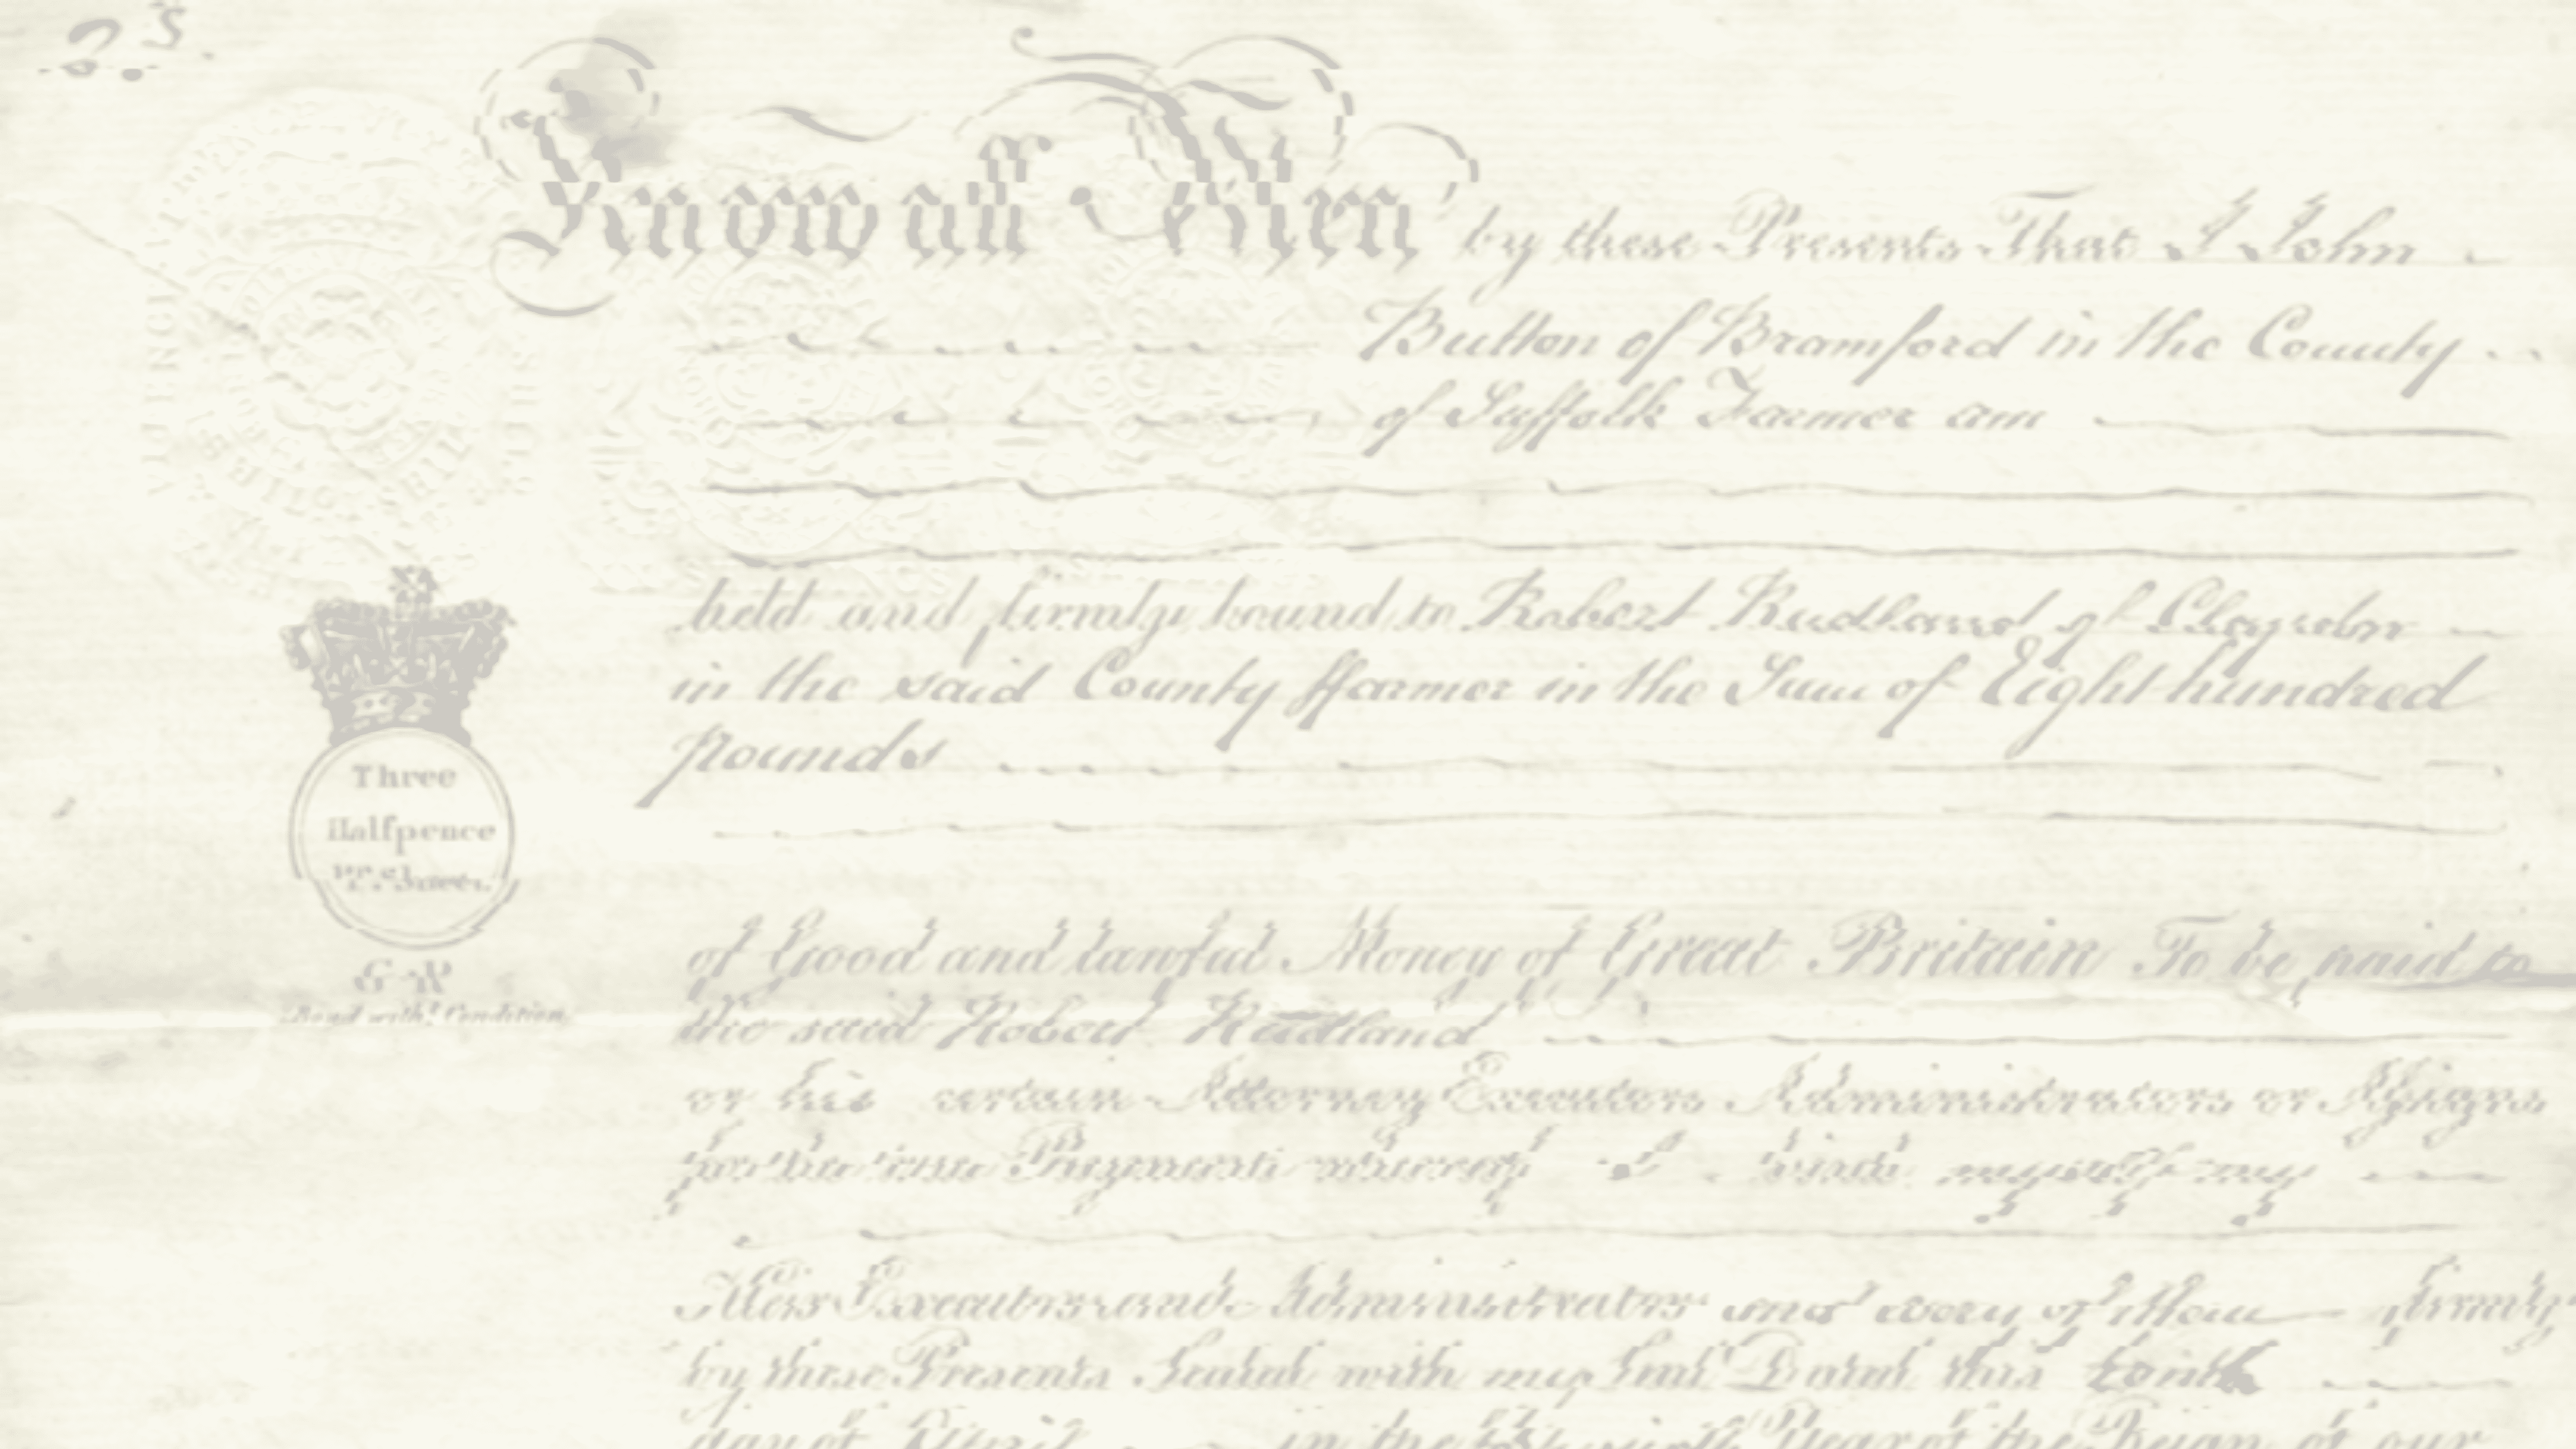 Know all Men by these Presents That I John
Button of Bramford in the County
of Suffolk Farmer am
held and firmly bound to Robert Rudland of Claydon
in the said County ffarmer in the Sum of Eight hundred
pounds
Three
Halfpence
Pr. Sheet.
G R
Bond witht. Condition.
of Good and lawful Money of Great Britain To be paid to
the said Robert Rudland
or his certain Attorney Executors Administrators or Assigns
for the true Payment whereof I bind myself my
Heirs Executors and Administrators and every of them firmly
by these Presents Sealed with my Seal Dated this tenth
day of April in the Year of the Reign of our